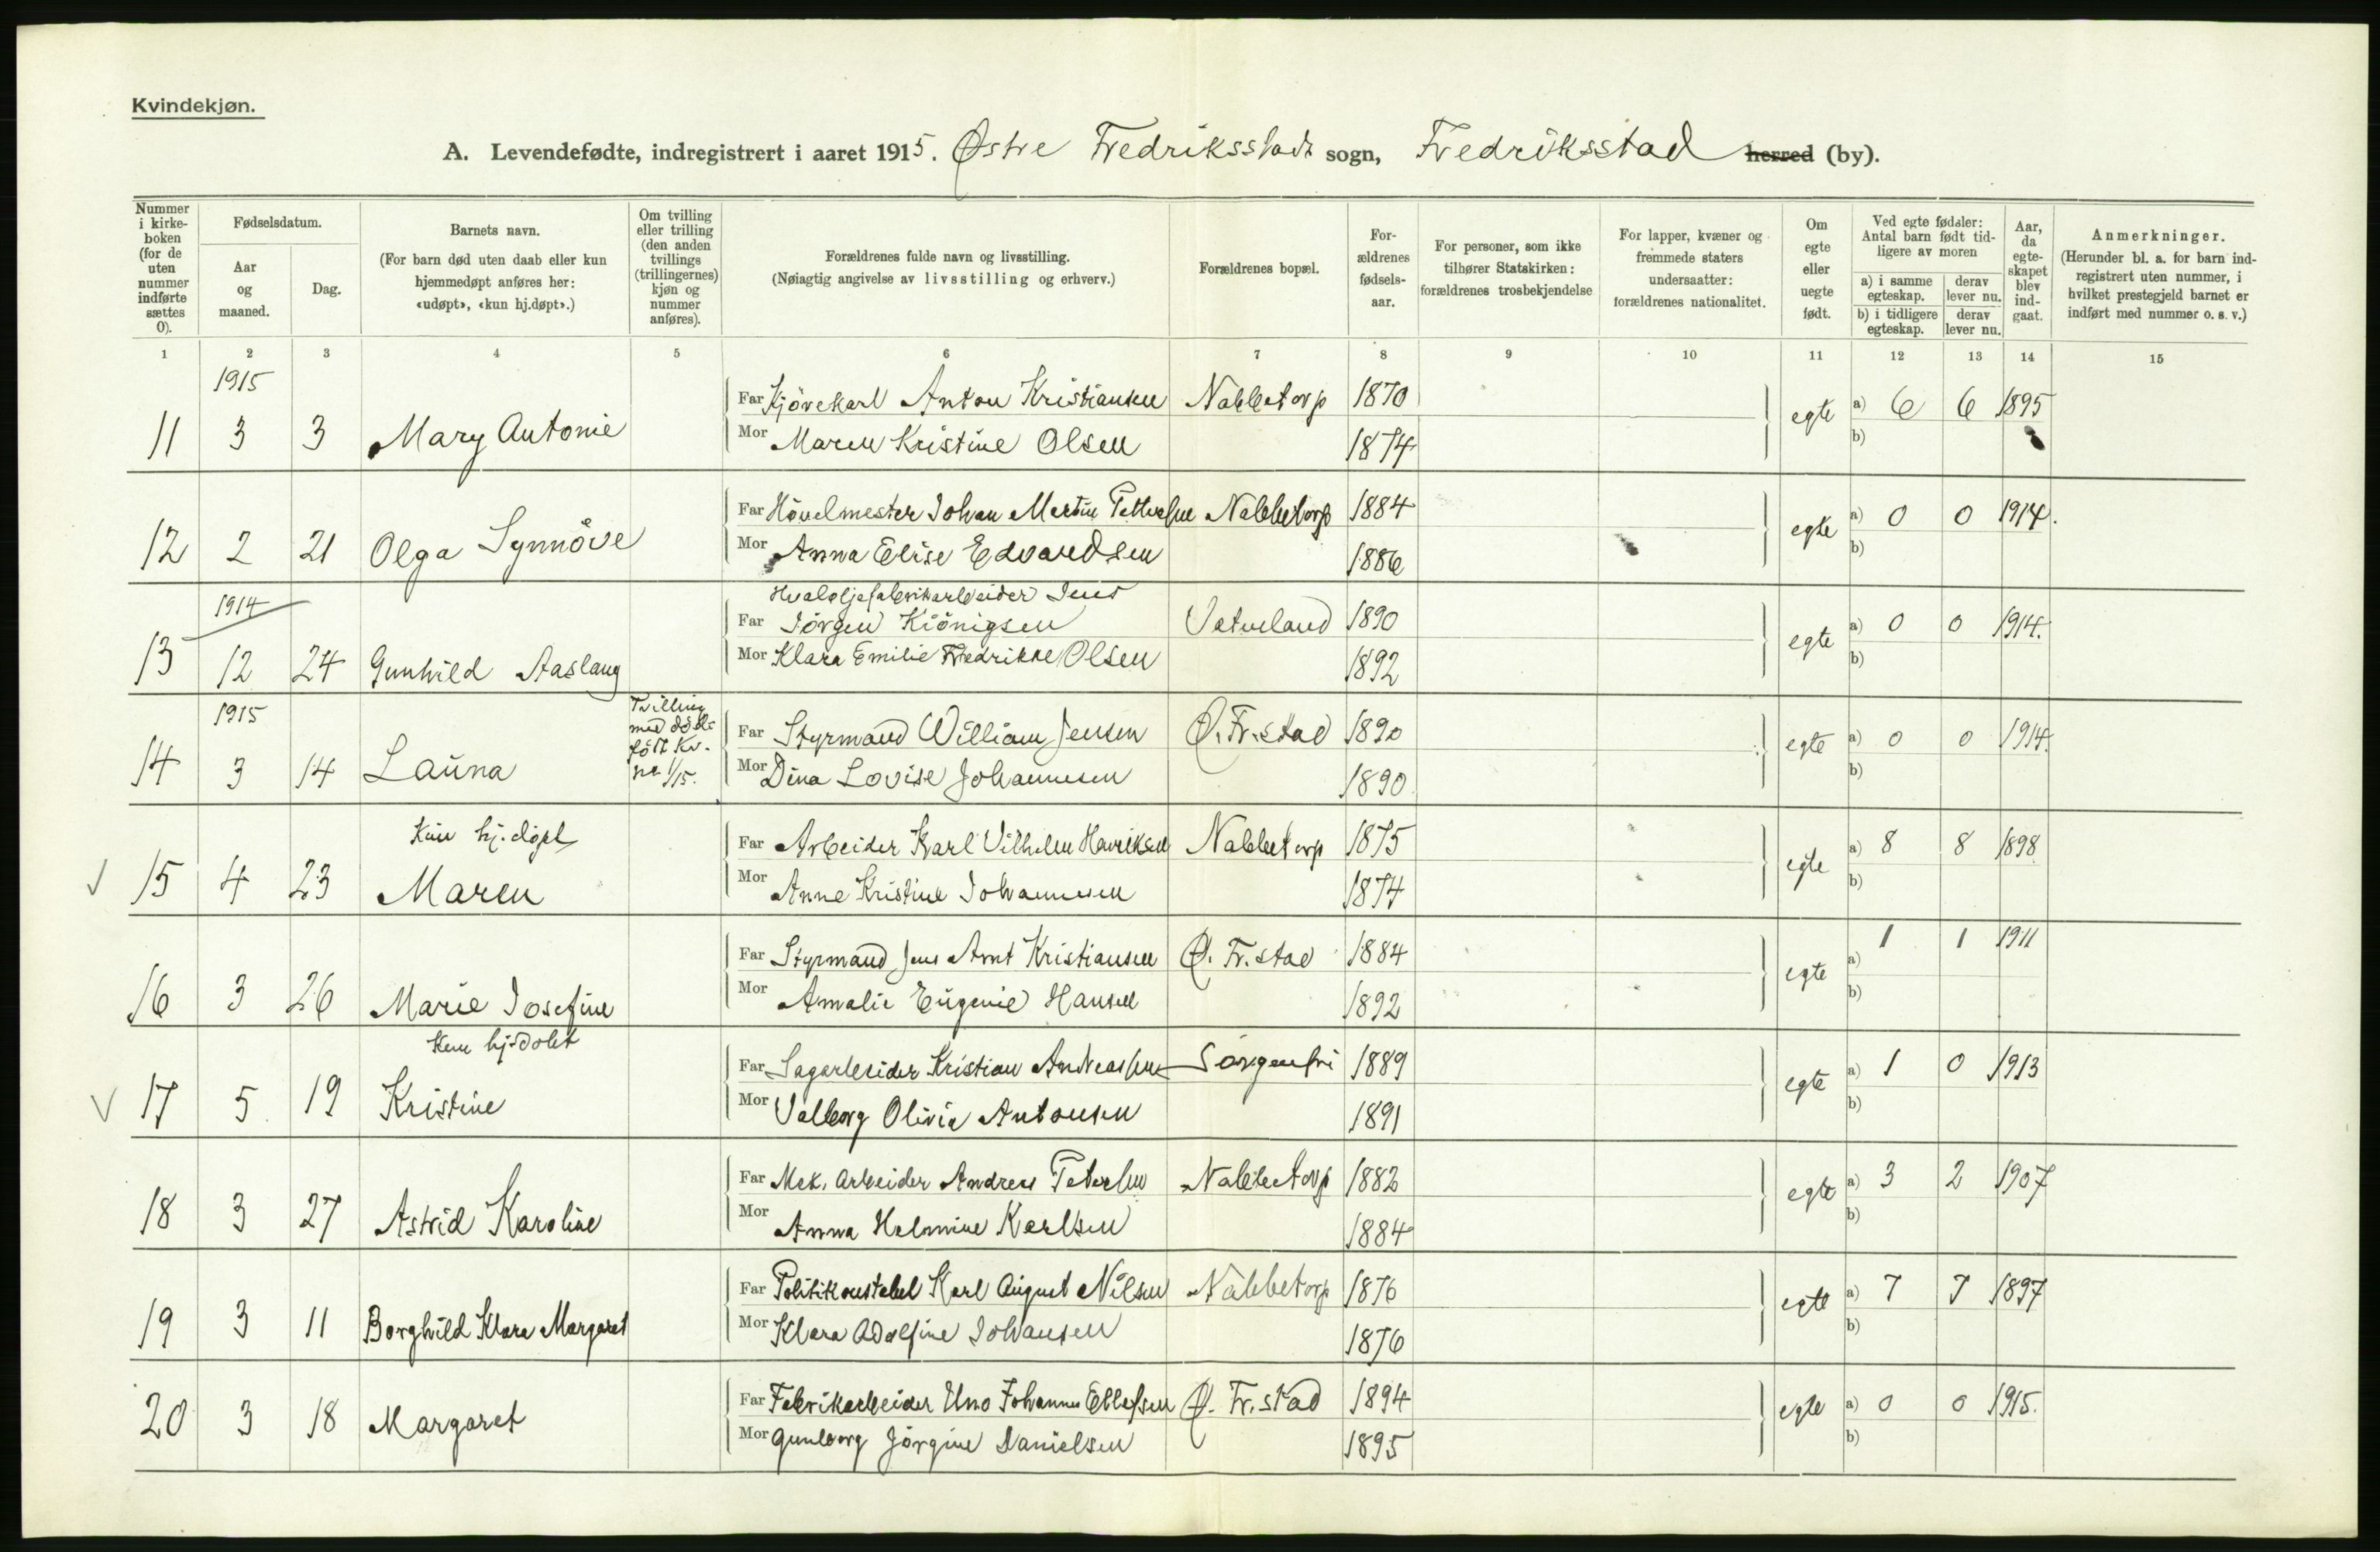 Kvindekjøn.
A. Levendefødte, indregistrert i aaret 1915. Østre Fredriksstads sogn, Fredriksstad herred (by).
Nummer i kirke-boken (for de uten nummer indførte sættes 0).
Fødselsdatum.
Aar og maaned.
Dag.
Barnets navn.
(For barn død uten daab eller kun hjemmedøpt anføres her: «udøpt», «kun hj.døpt».)
Om tvilling eller trilling (den anden tvillings (trillingernes) kjøn og nummer anføres).
Forældrenes fulde navn og livsstilling.
(Nøiagtig angivelse av livsstilling og erhverv.)
Forældrenes bopæl.
For-ældrenes fødsels-aar.
For personer, som ikke tilhører Statskirken: forældrenes trosbekjendelse
For lapper, kvæner og fremmede staters undersaatter: forældrenes nationalitet.
Om egte eller uegte født.
Ved egte fødsler: Antal barn født tid-ligere av moren
a) i samme egteskap.
derav lever nu.
b) i tidligere egteskap.
derav lever nu.
Aar, da egte-skapet blev ind-gaat.
Anmerkninger.
(Herunder bl. a. for barn ind-registrert uten nummer, i hvilket prestegjeld barnet er indført med nummer o. s. v.)
1 2 3 4 5 6 7 8 9 10 11 12 13 14 15
1915
Far Kjørekarl Anton Kristiansen Nabbetorp 1870
11 3 3 Mary Antonie egte a) 6 6 1895
Mor Maren Kristine Olsen 1874 b)
Far Høvelmester Johan Martin Pettersen Nabbetorp 1884
12 2 21 Olga Synnöve egte a) 0 0 1914.
Mor Anna Elise Edvardsen 1886 b)
1914
Hvaloljefabrikarbeider Jens
Far Jörgen Kiönigsen Vetveland 1890
13 12 24 Gunhild Aaslaug egte a) 0 0 1914.
Mor Klara Emilie Fredrikke Olsen 1892 b)
1915
Tvilling med död-födt Kv. no 1/15.
Far Styrmand William Jensen Ø. Fr.stad 1890
14 3 14 Launa egte a) 0 0 1914.
Mor Dina Lovise Johannesen 1890 b)
Kun hj.døpt
Far Arbeider Karl Vilhelm Henriksen Nabbetorp 1875
15 4 23 Maren egte a) 8 8 1898
Mor Anne Kristine Johannesen 1874 b)
Far Styrmand Jens Arnt Kristiansen Ø. Fr.stad 1884
16 3 26 Marie Josefine egte a) 1 1 1911
Mor Amalie Eugenie Hansen 1892 b)
Kun hj.døbt
Far Sagarbeider Kristian Andreassen Sorgenfri 1889
17 5 19 Kristine egte a) 1 0 1913
Mor Valborg Olivia Antonsen 1891 b)
Far Mek. Arbeider Andreas Petersen Nabbetorp 1882
18 3 27 Astrid Karoline egte a) 3 2 1907
Mor Anna Helmine Karlsen 1884 b)
Far Politikonstabel Karl August Nilsen Nabbetorp 1876
19 3 11 Borghild Klara Margaret egte a) 7 7 1897
Mor Klara Adolfine Johansen 1876 b)
Far Fabrikarbeider Uno Johannes Ellefsen Ø. Fr.stad 1894
20 3 18 Margaret egte a) 0 0 1915.
Mor Gunborg Jörgine Danielsen 1895 b)